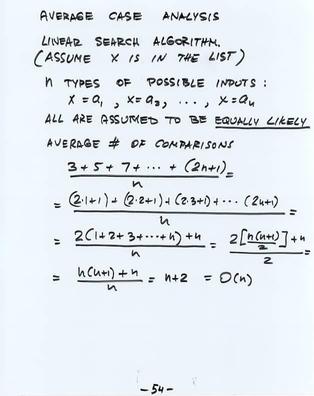 AVERAGE CASE ANALYSIS
LINEAR SEARCH ALGORITHM.
(ASSUME X IS IN THE LIST)
n TYPES OF POSSIBLE INPUTS:
X = a₁, X = a₂, ..., X = aₙ
ALL ARE ASSUMED TO BE EQUALLY LIKELY
AVERAGE # OF COMPARISONS
(3 + 5 + 7 + ... + (2n+1))/n =
= ((2·1+1) + (2·2+1) + (2·3+1) + ... (2n+1))/n =
= (2(1+2+3+...+n) + n)/n = (2[n(n+1)/2] + n)/2 =
= (n(n+1) + n)/n = n+2 = O(n)
-54-